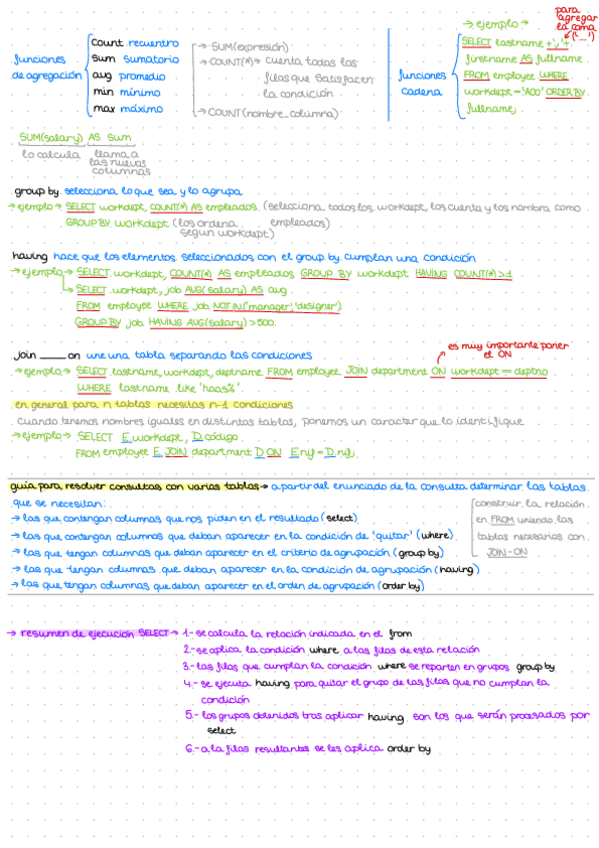 para
agregar
la coma
(' __ ')
→ ejemplo →
funciones
de agregación
count recuentro
sum sumatorio
avg promedio
min mínimo
max máximo
→ SUM(expresión)
→ COUNT(*)→ cuenta todas las
filas que satisfacen
la condición
→ COUNT(nombre_columna)
funciones
cadena
SELECT lastname +','+
firstname AS fullname
FROM employee WHERE
workdept='A00' ORDER BY
fullname;
SUM(salary) AS sum
lo calcula llama a
las nuevas
columnas
group by selecciona lo que sea y lo agrupa
→ ejemplo→ SELECT workdept, COUNT(*) AS empleados. (selecciona todos los workdept, los cuenta y los nombra como
GROUP BY workdept (los ordena empleados)
según workdept)
having hace que los elementos seleccionados con el group by cumplan una condición
→ ejemplo→ SELECT workdept, COUNT(*) AS empleados GROUP BY workdept HAVING COUNT(*)>1
→ SELECT workdept, job AVG(salary) AS avg
FROM employee WHERE job NOT IN('manager','designer')
GROUP BY job HAVING AVG(salary)>500.
join ____ on une una tabla separando las condiciones
es muy importante poner
el ON
→ ejemplo→ SELECT lastname, workdept, deptname FROM employee JOIN department ON workdept = deptno
WHERE lastname like 'haas%'.
en general para n tablas necesitas n-1 condiciones
Cuando tenemos nombres iguales en distintas tablas, ponemos un caracter que lo identifique
→ ejemplo→ SELECT E.workdept, D.código
FROM employee E JOIN department D ON E.nif=D.nif.
guía para resolver consultas con varias tablas→ a partir del enunciado de la consulta determinar las tablas
que se necesitan:
→ las que contengan columnas que nos piden en el resultado (select)
→ las que contengan columnas que deban aparecer en la condición de 'quitar' (where)
→ las que tengan columnas que deban aparecer en el criterio de agrupación (group by)
→ las que tengan columnas que deban aparecer en la condición de agrupación (having)
→ las que tengan columnas que deban aparecer en el orden de agrupación (order by)
construir la relación
en FROM uniendo las
tablas necesarias con
JOIN-ON
→ resumen de ejecución SELECT→ 1- se calcula la relación indicada en el from
2- se aplica la condición where a las filas de esta relación
3.- las filas que cumplan la condición where se reparten en grupos group by
4.- se ejecuta having para quitar el grupo de las filas que no cumplan la
condición
5.- los grupos obtenidos tras aplicar having son los que serán procesados por
select
6.- a la filas resultantes se les aplica order by